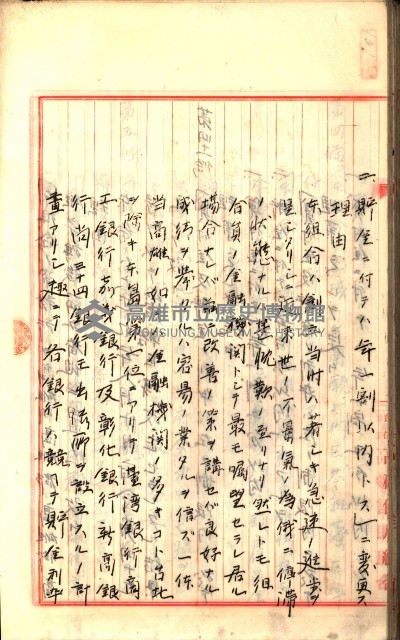 二、貯金ニ付テハ年一割以内トス」ニ変更ス
理由
本組合ハ創立当時ハ著シキ急速ノ進歩ヲ
呈シタリシニ近来世ノ不景氣ノ為俄ニ停滞
ノ状態ナルハ甚慨歎ノ至リナリ然レトモ組
合員ノ金融機関トシテ最モ嘱望セラレ居ル
場合ナレバ尚改善ノ策ヲ講セバ良好ナル
成績ヲ挙クルハ容易ノ業タルヲ信ズ一体
当高雄ノ如キハ金融機関ノ多キコト台北
ヲ除キ本島第一位ニアリテ臺灣銀行商
工銀行嘉義銀行及彰化銀行新高銀
行尚三十四銀行モ出張所ヲ設立スルノ計
畫アリシ趣ニテ各銀行ハ競フテ貯金利率
高雄市立歷史博物館